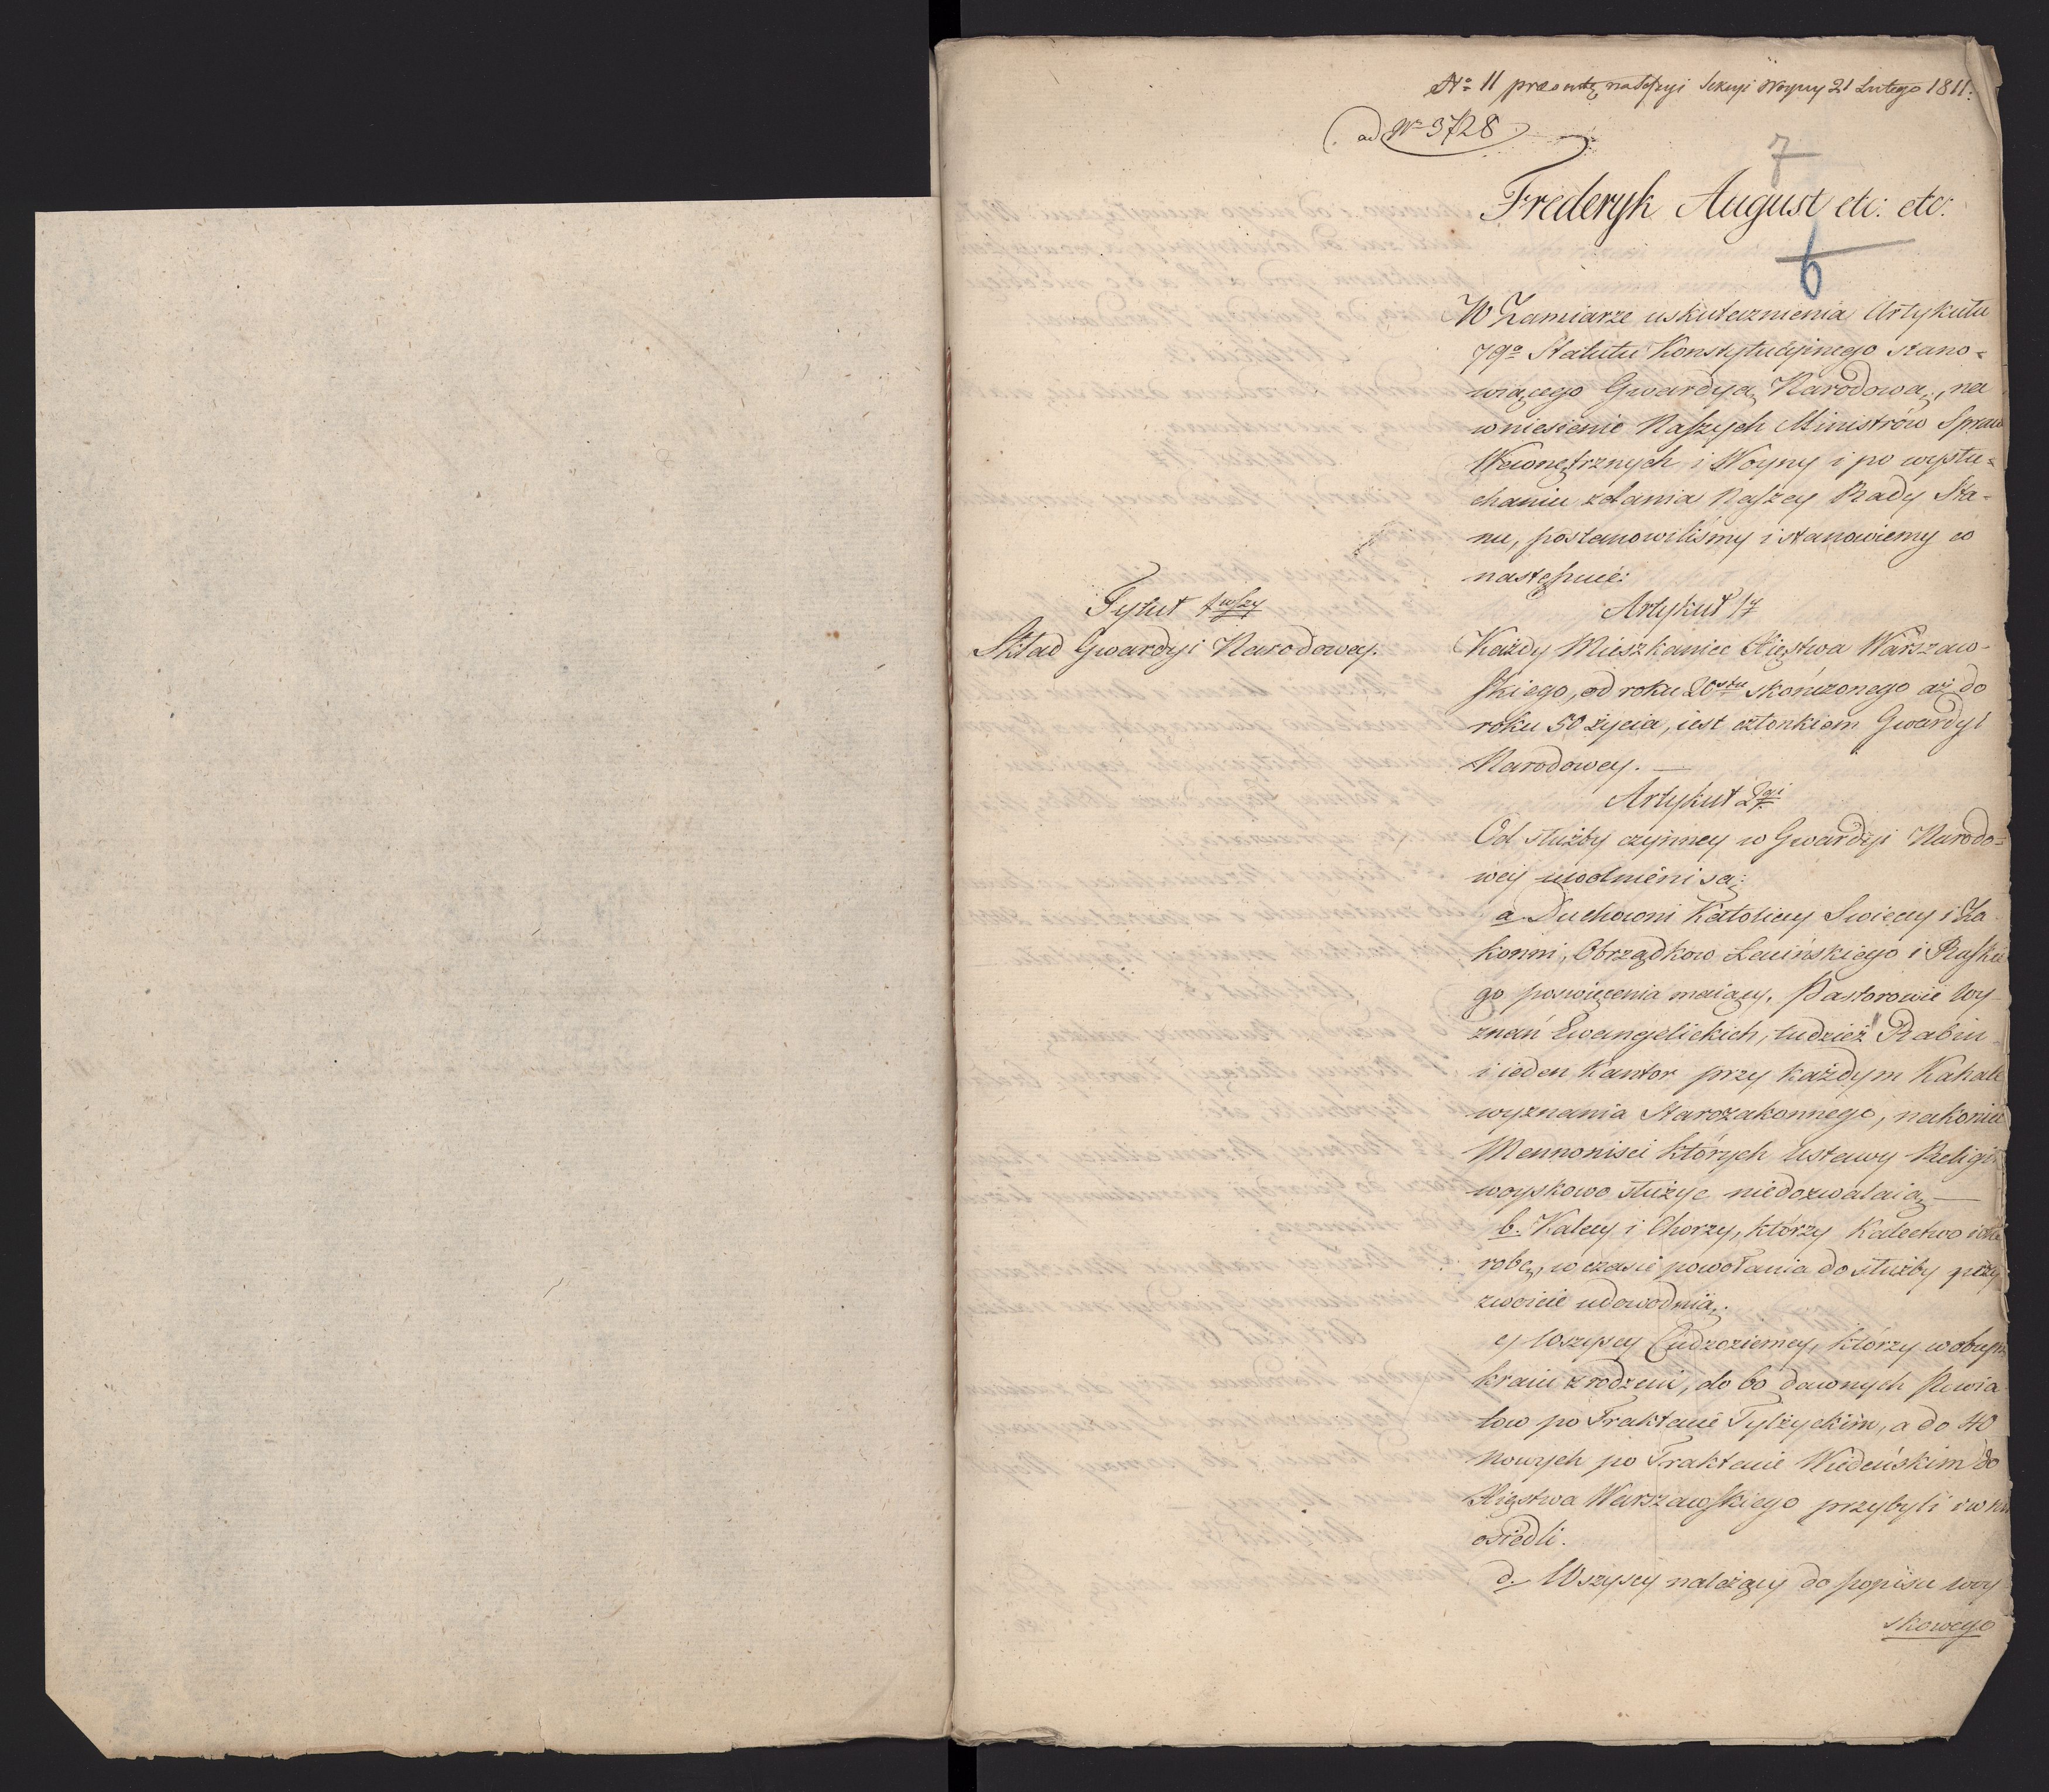 No 11 na Sessyi Sekcyi Woyny 21 Lutego 1811.
ad Nr 3728
7
Frederyk August etc: etc:
6
W Zamiarze uskutecznienia Artykułu
79o Statutu Konstytucyinego stano-
wiącego Gwardyą Narodową, na
wniesienie Naszych Ministrów Spraw
Wewnętrznych i Woyny i po wysłu-
chaniu zdania Naszey Rady Sta-
nu, postanowiliśmy i stanowiemy co
następuie:
Tytuł 1wszy
Skład Gwardyi Narodowey.
Artykuł 1y
Każdy Mieszkaniec Xięstwa Warszaw-
skiego, od roku 20stu skończonego aż do
roku 50 życia, iest członkiem Gwardyi
Narodowey.
Artykuł 2gi
Od służby czynney w Gwardyi Narodo-
wey uwolnieni są:
a Duchowni Katoliccy Swieccy i Za-
konni, Obrządkow Łacińskiego i Ruskie
go poswięcenia maiący, Pastorowie Wy-
znań Ewangelickich, tudzież Rabin
i ieden Kantor przy każdym Kahale
wyznania Starozakonnego, nakoniec
Mennonisci których Ustawy Religii
woyskowo służyc niedozwalaią
b. Kalecy i Chorzy, którzy Kalectwo i cho
robę, w czasie powołania do służby przy
zwoicie udowodnią.
c) Wszyscy Cudzoziemcy, którzy w obcym
kraiu zrodzeni, do 60 dawnych Powia
tow po Traktacie Tylżyckim, a do 40
nowych po Traktacie Wiedeńskim do
Xięstwa Warszawskiego przybyli i w nim
osiedli.
d. Wszyscy należący do popisu woy
skowego